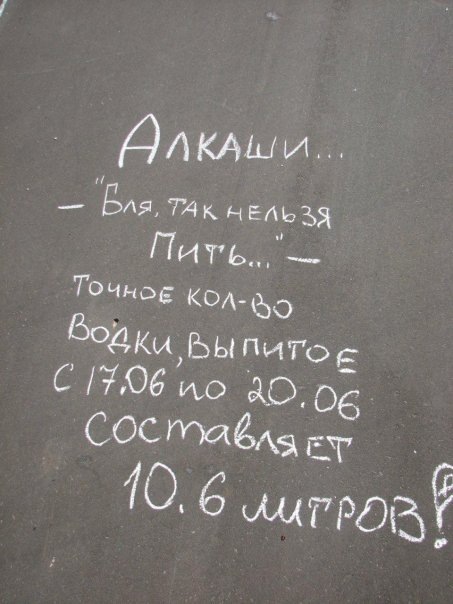 Алкаши...
— "Бля, так нельзя
Пить..." —
точное кол-во
водки, выпитое
с 17.06 по 20.06
составляет
10.6 литров!